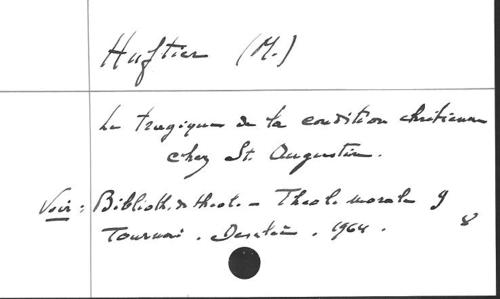 Huftier (M.)
Le tragique de la condition chrétienne
chez St. Augustin.
Voir : Biblioth. de théol. - Théol. morale 9
Tournai. Desclée. 1964. 8